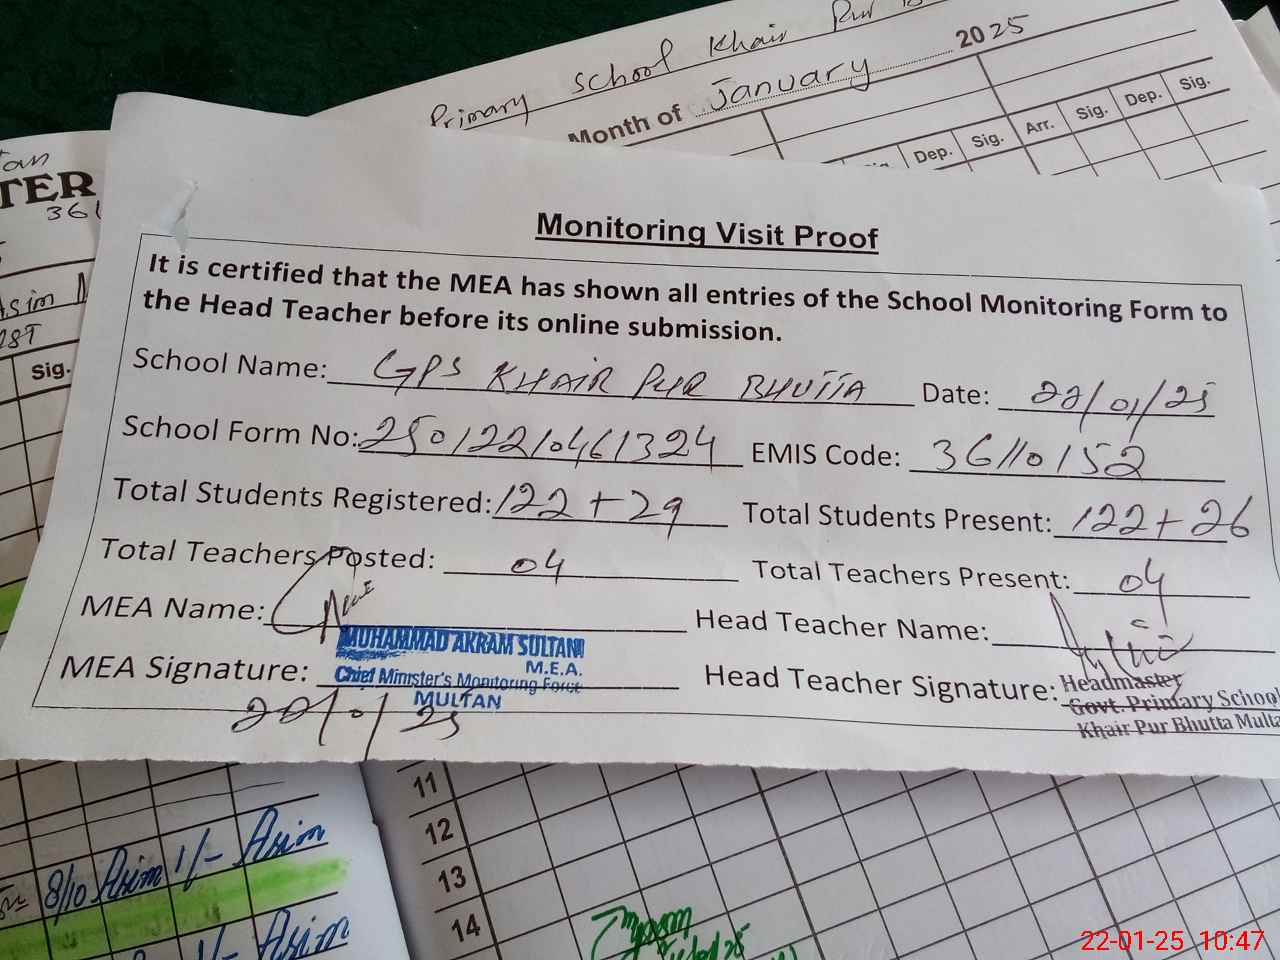 Primary School Khair Pur B
Month of January 2025
Dep. Sig. Arr. Sig. Dep. Sig.
TER
361
Asim
Sig.
Monitoring Visit Proof
It is certified that the MEA has shown all entries of the School Monitoring Form to
the Head Teacher before its online submission.
School Name: GPS KHAIR PUR BHUTTA Date: 22/01/25
School Form No: 25012210461324 EMIS Code: 36110152
Total Students Registered: 122+29 Total Students Present: 122+26
Total Teachers Posted: 04 Total Teachers Present: 04
MEA Name: Head Teacher Name:
MUHAMMAD AKRAM SULTANI
M.E.A.
MEA Signature: Chief Minister's Monitoring Force Head Teacher Signature: Headmaster
MULTAN Govt. Primary School
22/01/25 Khair Pur Bhutta Multa
11
12
13
14
8/10 Asim 1/- Asim
1/- Asim
22-01-25 10:47